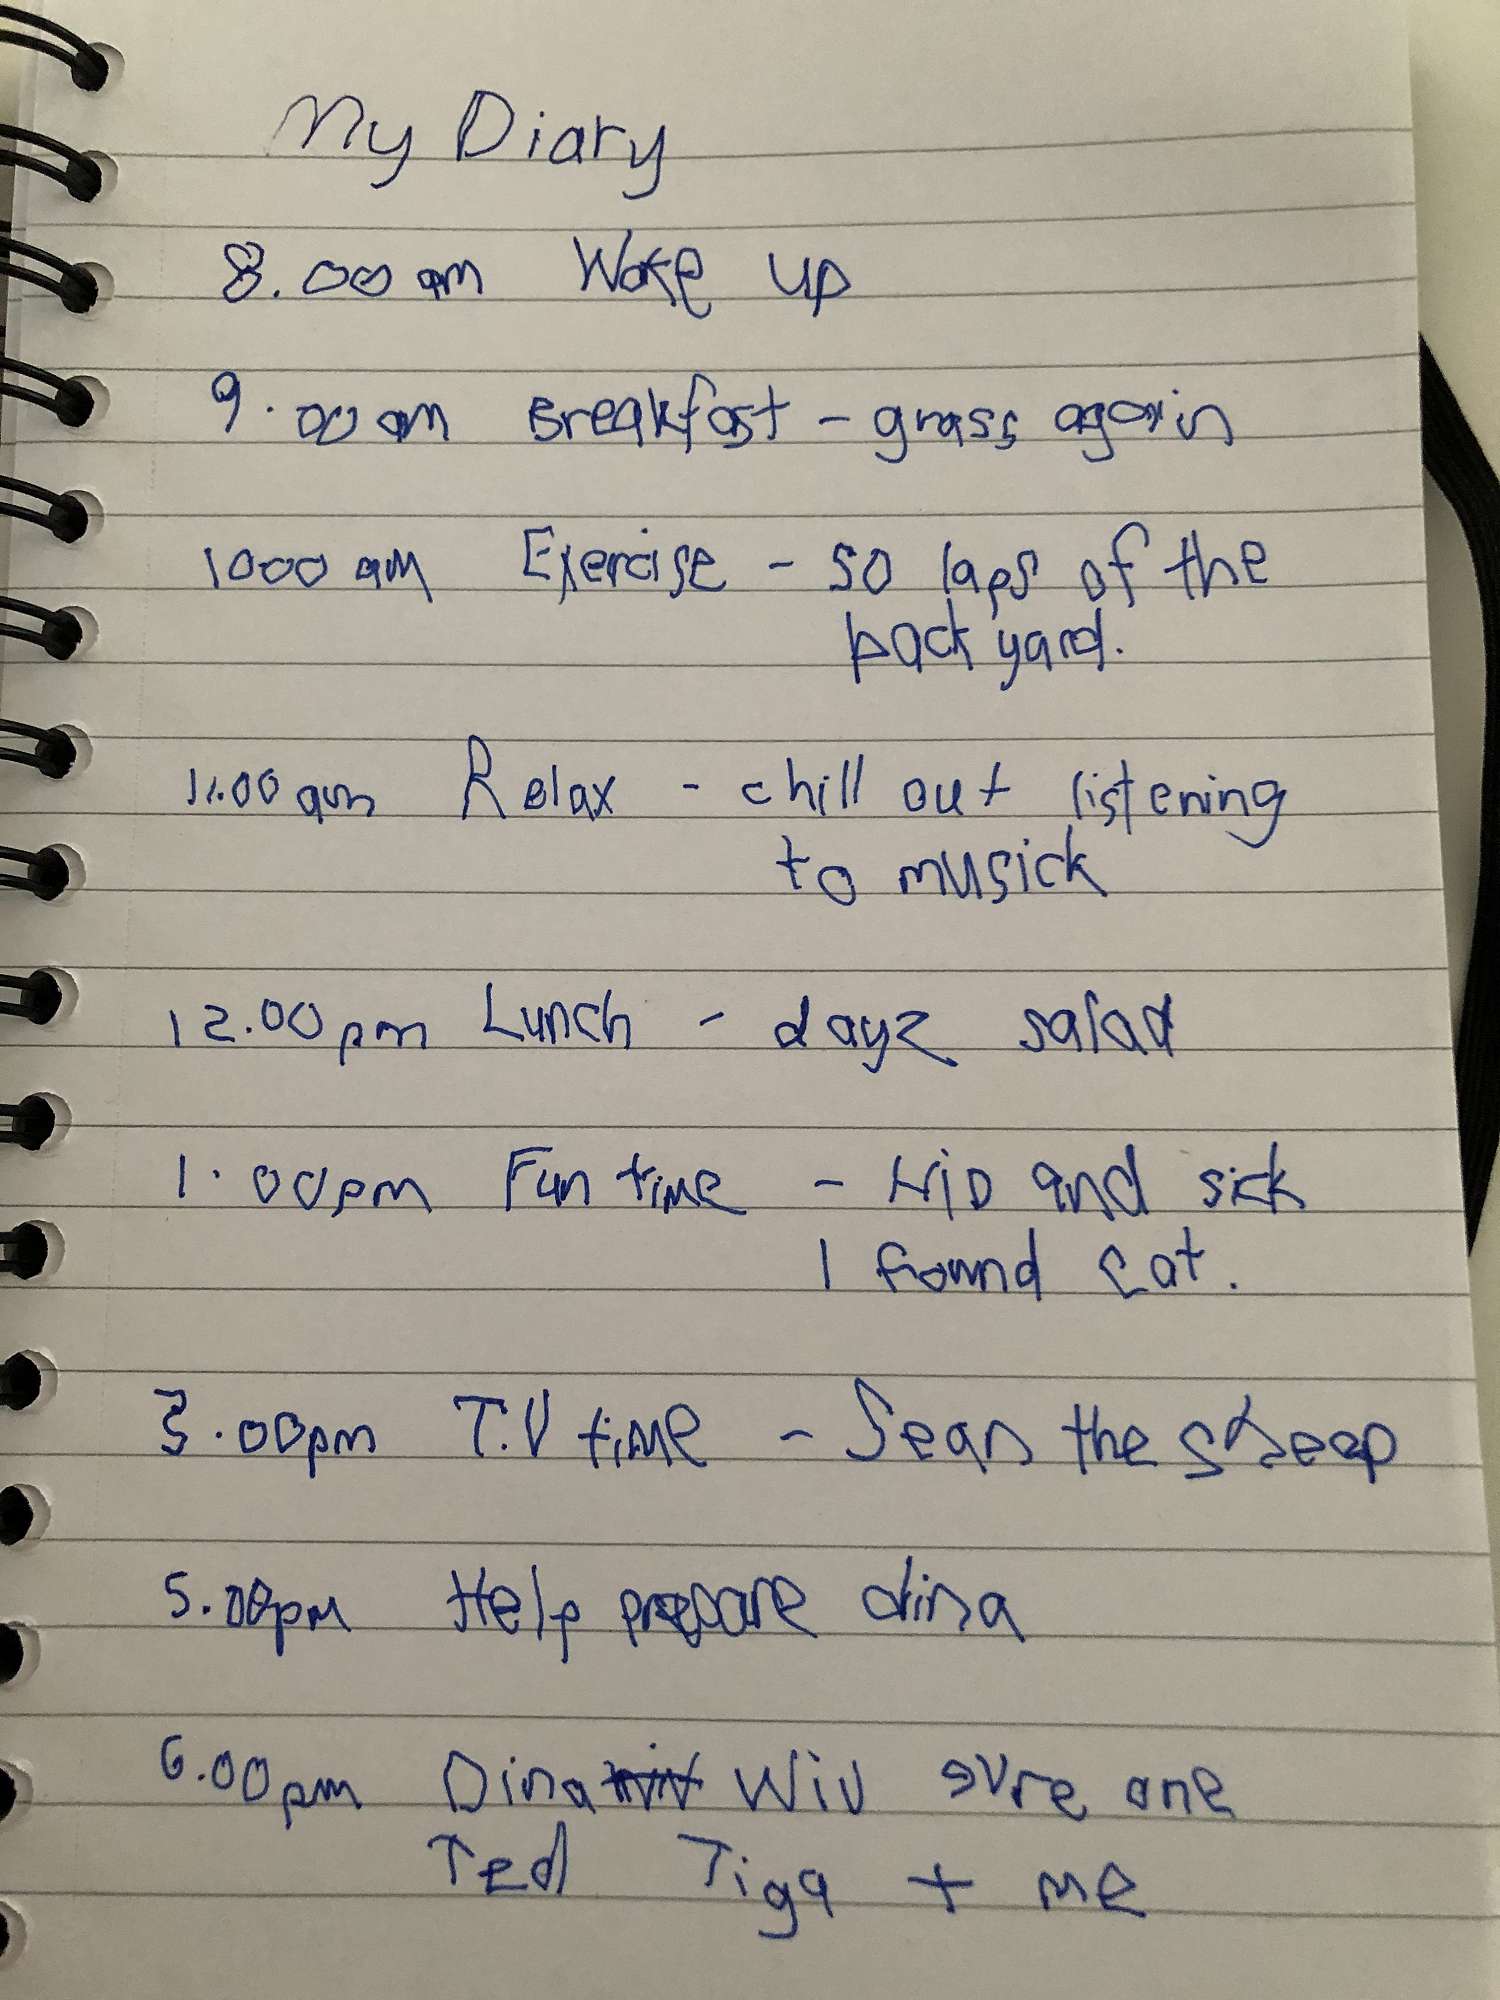 My Diary
8.00am Woke up
9.00am Breakfast - grass again
1000am Exercise - 50 laps of the
back yard.
11.00am Relax - chill out listening
to musick
12.00pm Lunch - dayz salad
1.00pm Fun time - Hid and sick
I found cat.
3.00pm T.V time - Sean the sheep
5.00pm Help prepare dina
6.00pm Dina Wiv evre one
Ted Tiga + me